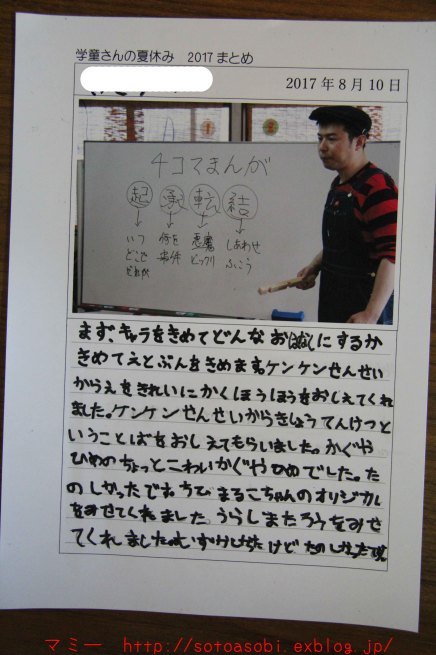 学童さんの夏休み 2017まとめ
2017年8月10日
4コマまんが
起 承 転 結
いつ 何を 悪魔 しあわせ
どこで 条件 ビックリ ふこう
だれが
まず、キャラをきめてどんなおはなしにするか
きめてえとぶんをきめます。ケンケンせんせい
からえをきれいにかくほうほうをおしえてくれ
ました。ケンケンせんせいからきしょうてんけつと
いうことばをおしえてもらいました。かぐや
ひめのちょっとこわいかぐやひめでした。た
のしかったです。ちびまるこちゃんのオリジナル
をみせてくれました うらしまたろうをみせ
てくれました。むずかしかったけどたのしかった
マミー http://sotoasobi.exblog.jp/